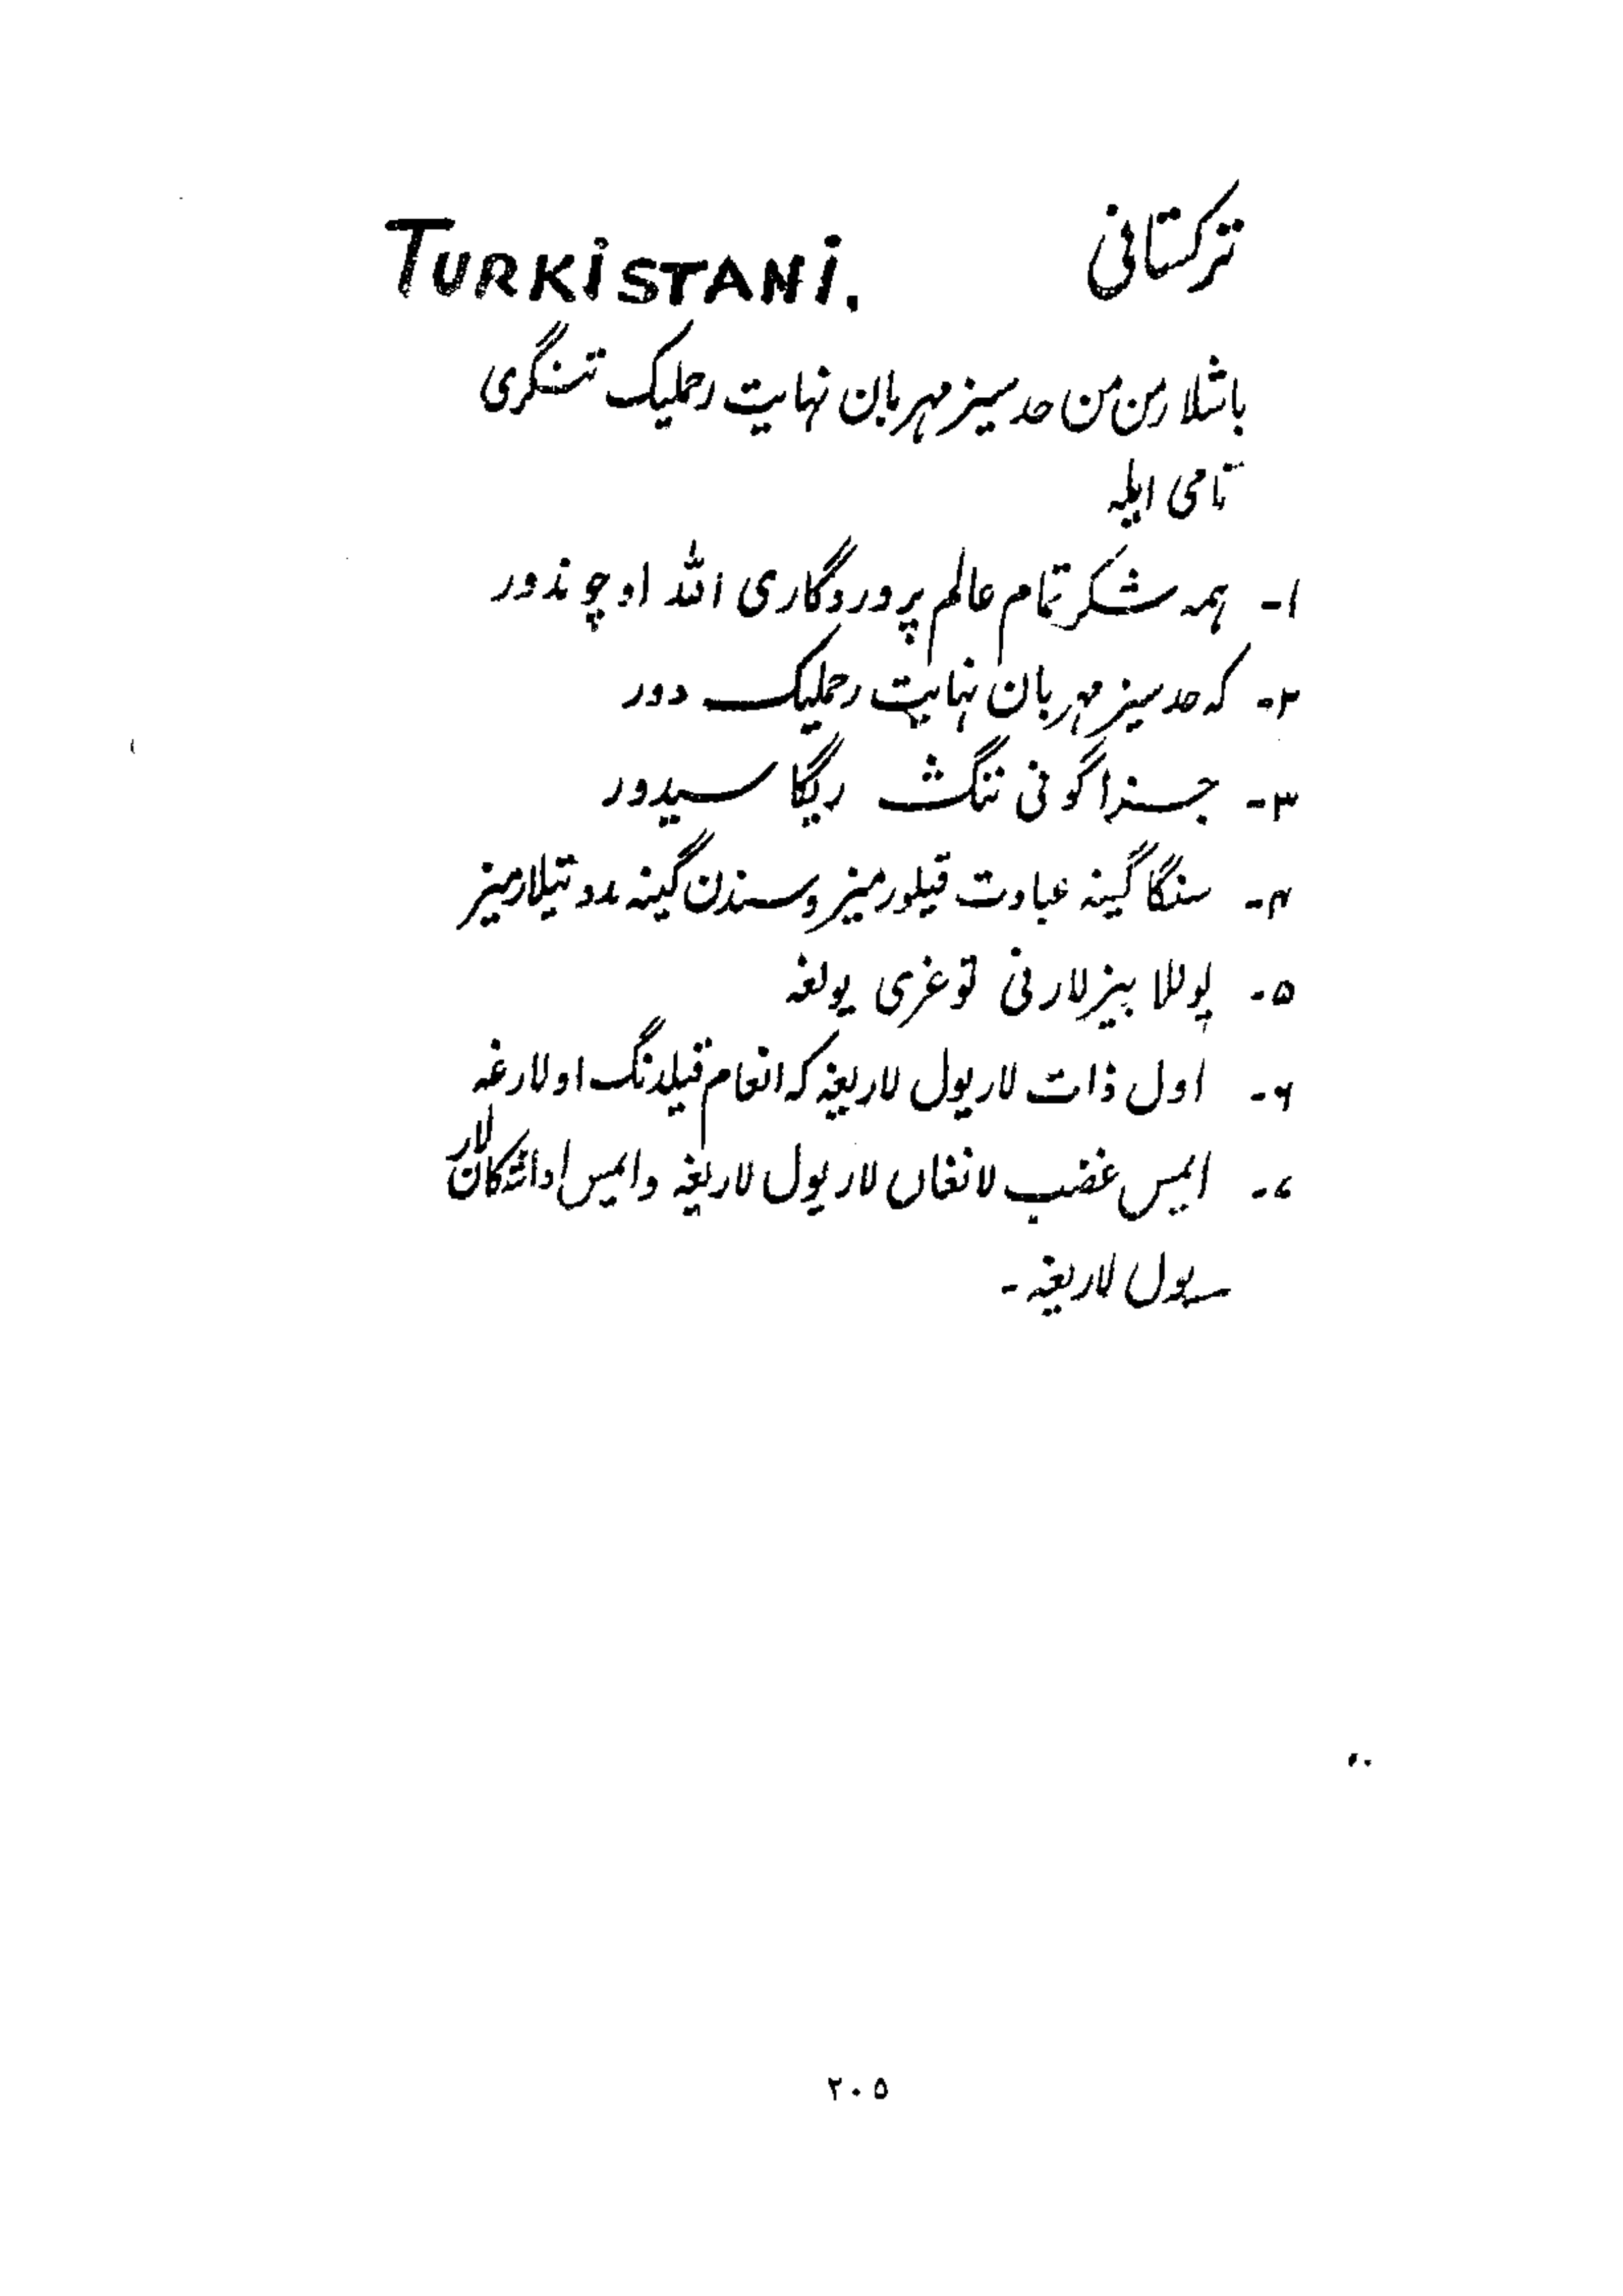 ترکستانی
TURKiSTANi.
باشلارمن من حدسیز مهربان نهایت رحملیک تنگری
نامی ایله
۱- همه شکر تمام عالم پروردگاری الله اوچوندور
۲- که حدسیز مهربان نهایت رحملیک دور
۳- جزا گونی ننگ ایگاسیدور
۴- سنگا گینه عبادت قیلورمیز و سندن گینه مدد تیلارمیز
۵- یوللا بیزلارنی توغری یولغه
۶- اول ذات لار یول لاریغه که انعام قیلدنگ اولارغه
۷- ایمس غضب لانغان لار یول لاریغه و ایمس اداشکان لار
یول لاریغه -
۲۰۵